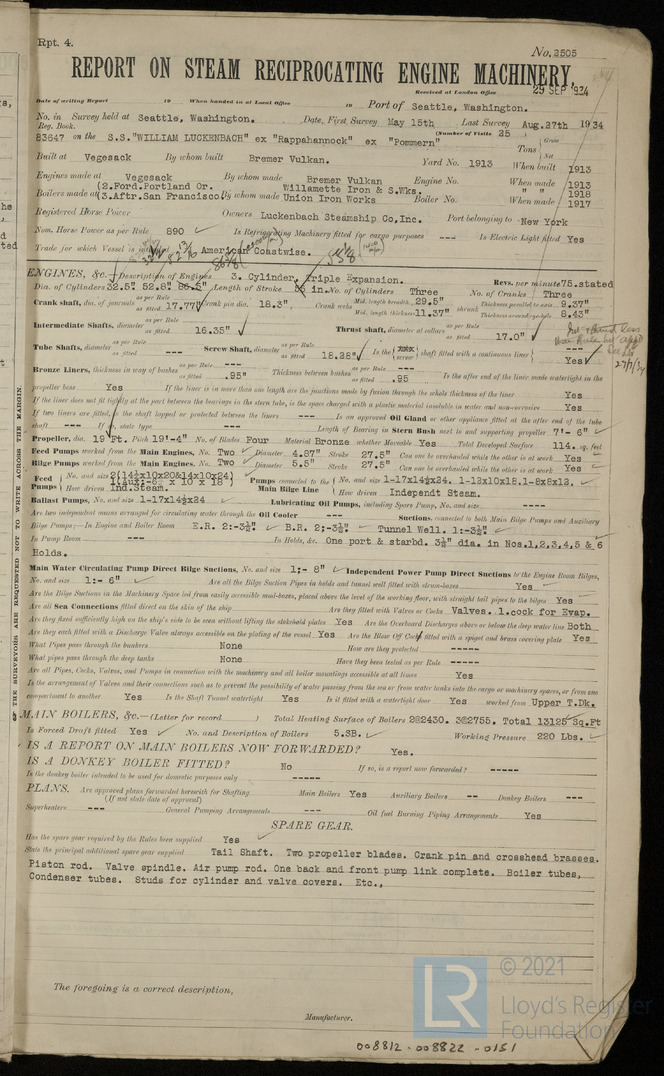 Rpt. 4.
No. 2505
REPORT ON STEAM RECIPROCATING ENGINE MACHINERY.
Received at London Office 29 SEP 1934
Date of writing Report 19 When handed in at Local Office 19 Port of Seattle, Washington.
No. in Survey held at Seattle, Washington. Date, First Survey May 15th Last Survey Aug. 27th 1934
Reg. Book. (Number of Visits 25)
83647 on the S.S. "WILLIAM LUCKENBACH" ex "Rappahannock" ex "Pommern" Tons Gross Net
Built at Vegesack By whom built Bremer Vulkan. Yard No. 1913 When built 1913
Engines made at Vegesack By whom made Bremer Vulkan Engine No. When made 1913
Boilers made at (2.Ford.Portland Or. (3.Aftr.San Francisco) By whom made Willamette Iron & S.Wks. Union Iron Works Boiler No. When made " " 1918 1917
Registered Horse Power Owners Luckenbach Steamship Co,Inc. Port belonging to New York
Nom. Horse Power as per Rule 890 Is Refrigerating Machinery fitted for cargo purposes --- Is Electric Light fitted Yes
Trade for which Vessel is intended American Coastwise.
ENGINES, &c.—Description of Engines 3. Cylinder, Triple Expansion. Revs. per minute 75.stated
Dia. of Cylinders 32.5" 52.8" 86.5" Length of Stroke 55 in. No. of Cylinders Three No. of Cranks Three
Crank shaft, dia. of journals as per Rule as fitted 17.77" Crank pin dia. 18.3" Crank webs Mid. length breadth 29.5" Mid. length thickness 11.37" shrunk Thickness parallel to axis 9.37" Thickness around eye-hole 8.43"
Intermediate Shafts, diameter as per Rule as fitted 16.35" Thrust shaft, diameter at collars as per Rule as fitted 17.0"
Tube Shafts, diameter as per Rule as fitted --- Screw Shaft, diameter as per Rule as fitted 18.28" Is the screw shaft fitted with a continuous liner Yes
27/9/34
Bronze Liners, thickness in way of bushes as per Rule --- as fitted .95" Thickness between bushes as per Rule --- as fitted .95 Is the after end of the liner made watertight in the
propeller boss Yes If the liner is in more than one length are the junctions made by fusion through the whole thickness of the liner Yes
If the liner does not fit tightly at the part between the bearings in the stern tube, is the space charged with a plastic material insoluble in water and non-corrosive Yes
If two liners are fitted, is the shaft lapped or protected between the liners --- Is an approved Oil Gland or other appliance fitted at the after end of the tube
shaft --- If so, state type --- Length of Bearing in Stern Bush next to and supporting propeller 7'- 6"
Propeller, dia. 19 Ft. Pitch 19'-4" No. of Blades Four Material Bronze whether Moveable Yes Total Developed Surface 114. sq. feet
Feed Pumps worked from the Main Engines, No. Two Diameter 4.87" Stroke 27.5" Can one be overhauled while the other is at work Yes
Bilge Pumps worked from the Main Engines, No. Two Diameter 5.5" Stroke 27.5" Can one be overhauled while the other is at work Yes
Feed Pumps No. and size 2(14½x10x20&14x10x24) 1(Aux:-8½ x 10 x 18) How driven Ind.Steam. Pumps connected to the Main Bilge Line No. and size 1-17x14½x24. 1-12x10x18.1-8x8x12. How driven Independt Steam.
Ballast Pumps, No. and size 1-17x14½x24 Lubricating Oil Pumps, including Spare Pump, No. and size -----
Are two independent means arranged for circulating water through the Oil Cooler ----- Suctions, connected to both Main Bilge Pumps and Auxiliary
Bilge Pumps;—In Engine and Boiler Room E.R. 2:-3½" B.R. 2;-3½" Tunnel Well. 1:-3½"
In Pump Room --- In Holds, &c. One port & starbd. 3½" dia. in Nos.1,2,3,4,5 & 6
Holds.
Main Water Circulating Pump Direct Bilge Suctions, No. and size 1;- 8" Independent Power Pump Direct Suctions to the Engine Room Bilges,
No. and size 1:- 6" Are all the Bilge Suction Pipes in holds and tunnel well fitted with strum-boxes Yes
Are the Bilge Suctions in the Machinery Space led from easily accessible mud-boxes, placed above the level of the working floor, with straight tail pipes to the bilges Yes
Are all Sea Connections fitted direct on the skin of the ship Are they fitted with Valves or Cocks Valves. 1.cock for Evap.
Are they fixed sufficiently high on the ship's side to be seen without lifting the stokehold plates Yes Are the Overboard Discharges above or below the deep water line Both
Are they each fitted with a Discharge Valve always accessible on the plating of the vessel Yes Are the Blow Off Cocks fitted with a spigot and brass covering plate Yes
What Pipes pass through the bunkers None How are they protected -----
What pipes pass through the deep tanks None Have they been tested as per Rule -----
Are all Pipes, Cocks, Valves, and Pumps in connection with the machinery and all boiler mountings accessible at all times Yes
Is the arrangement of Valves and their connections such as to prevent the possibility of water passing from the sea or from water tanks into the cargo or machinery spaces, or from one
compartment to another Yes Is the Shaft Tunnel watertight Yes Is it fitted with a watertight door Yes worked from Upper T.Dk.
MAIN BOILERS, &c.—(Letter for record ) Total Heating Surface of Boilers 2@2430. 3@2755. Total 13125 Sq.Ft
Is Forced Draft fitted Yes No. and Description of Boilers 5.SB. Working Pressure 220 Lbs.
IS A REPORT ON MAIN BOILERS NOW FORWARDED? Yes.
IS A DONKEY BOILER FITTED? No If so, is a report now forwarded? -----
Is the donkey boiler intended to be used for domestic purposes only -----
PLANS. Are approved plans forwarded herewith for Shafting Main Boilers Yes Auxiliary Boilers -- Donkey Boilers ---
(If not state date of approval)
Superheaters --- General Pumping Arrangements --- Oil fuel Burning Piping Arrangements Yes
SPARE GEAR.
Has the spare gear required by the Rules been supplied Yes
State the principal additional spare gear supplied Tail Shaft. Two propeller blades. Crank pin and crosshead brasses.
Piston rod. Valve spindle. Air pump rod. One back and front pump link complete. Boiler tubes,
Condenser tubes. Studs for cylinder and valve covers. Etc.,
The foregoing is a correct description,
Manufacturer.
THE SURVEYORS ARE REQUESTED NOT TO WRITE ACROSS THE MARGIN.
LR
© 2021
Lloyd's Register
Foundation
008812 - 008822 - 0151